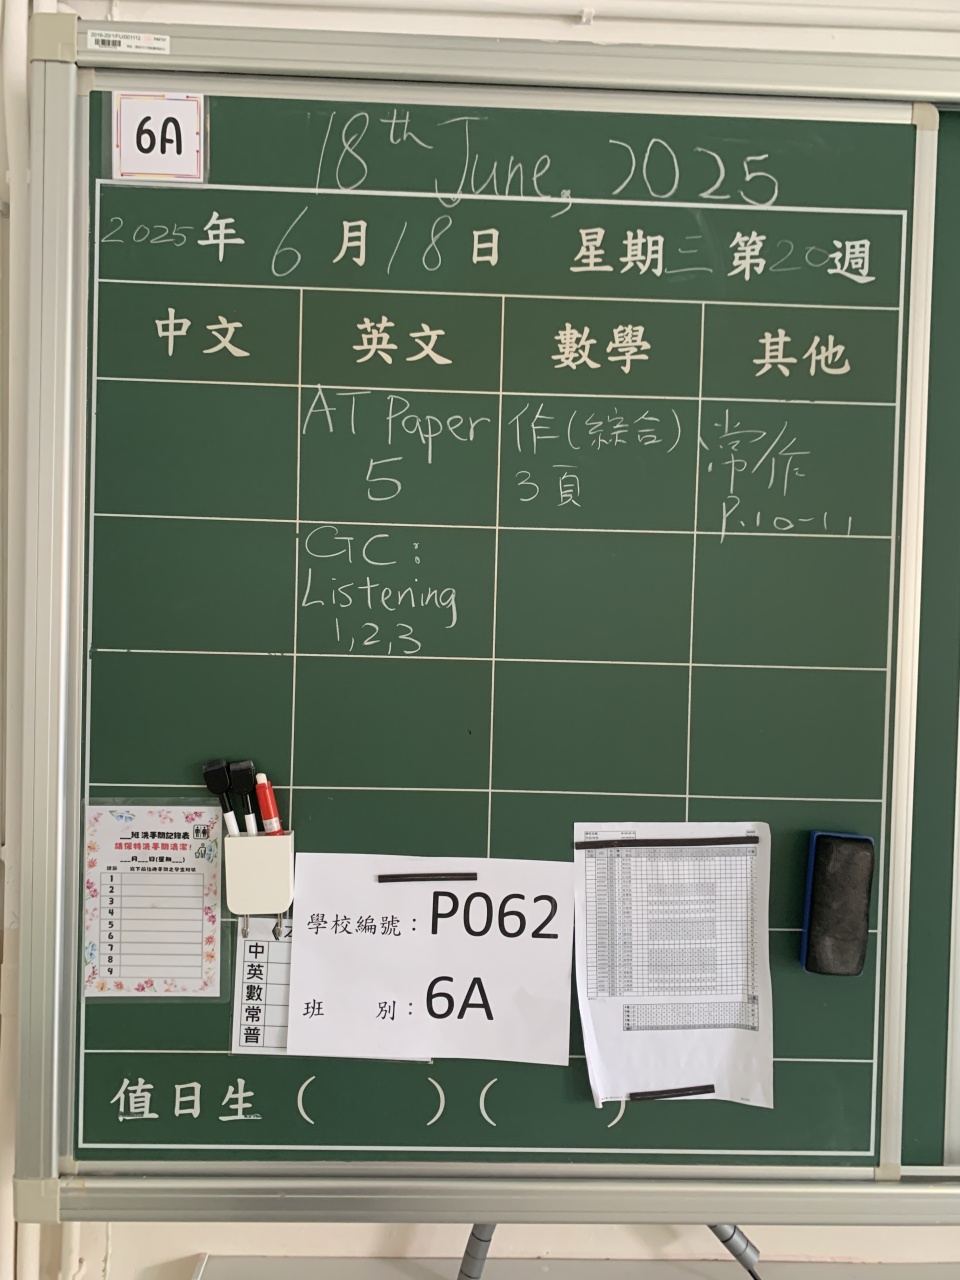 6A
18th June, 2025
2025年 6月18日 星期三 第20週
中文 英文 數學 其他
AT Paper 5
作(綜合) 3頁
常作 P.10-11
GC: Listening 1,2,3
___班洗手間記錄表
請保持洗手間清潔!
___月___日(星期___)
1
2
3
4
5
6
7
8
9
中
英
數
常
普
學校編號：P062
班 別：6A
值日生（ ）（ ）